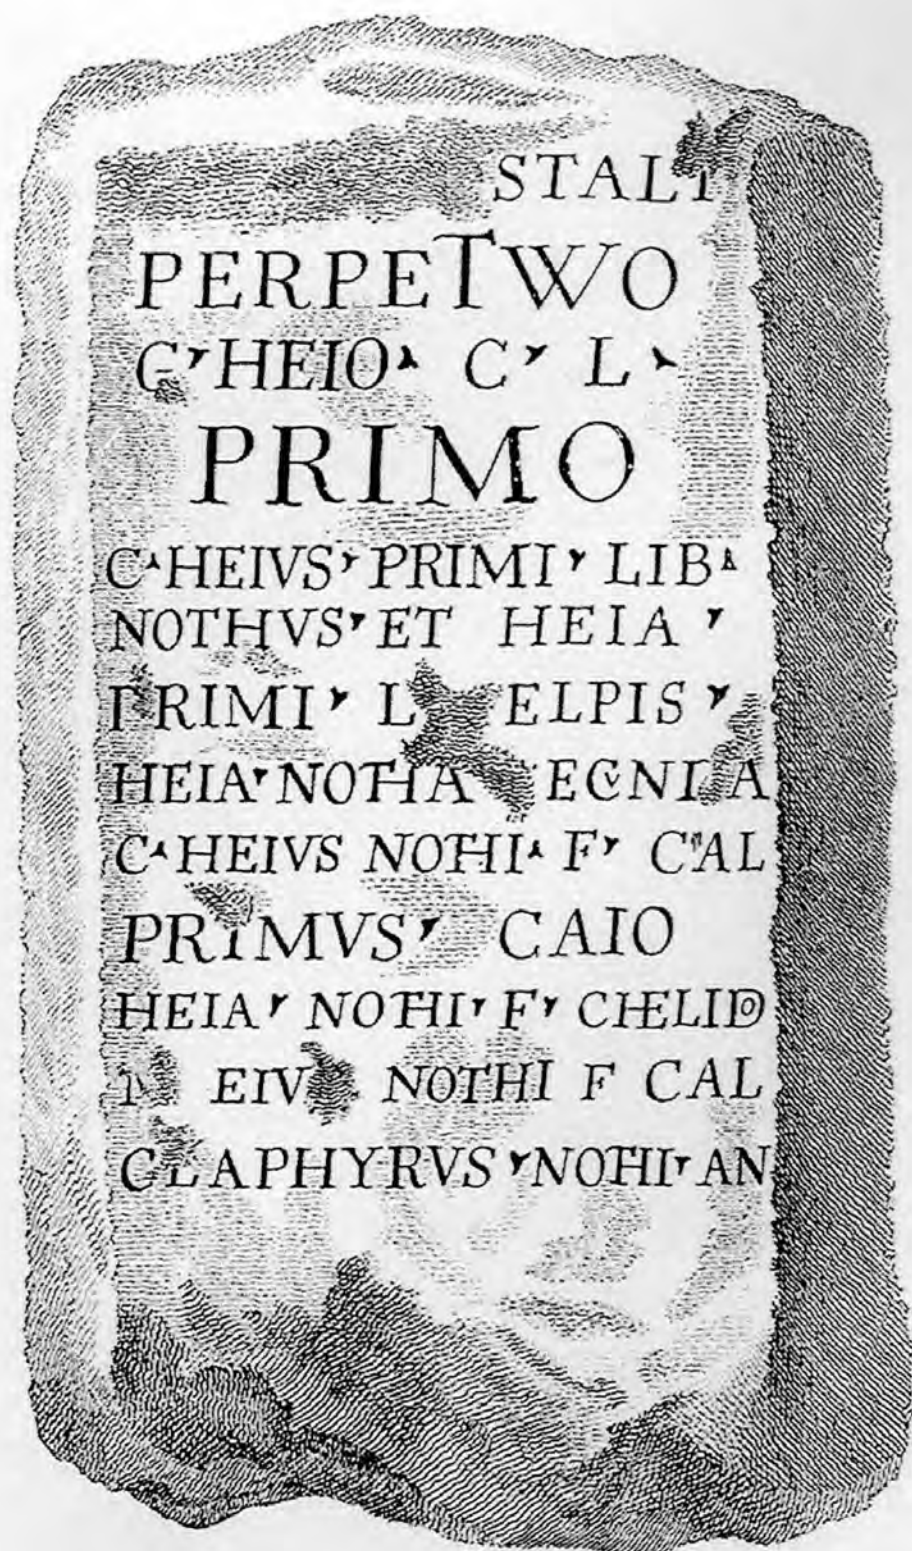 STALI
PERPETVVO
C·HEIO· C· L·
PRIMO
C·HEIVS·PRIMI·LIB·
NOTHVS·ET HEIA·
PRIMI· L ELPIS·
HEIA·NOTHA
C·HEIVS NOTHI· F· CAL
PRIMVS· CAIO
HEIA· NOTHI· F· CHELIDO
EIV NOTHI F CAL
GLAPHYRVS·NOTHI·AN